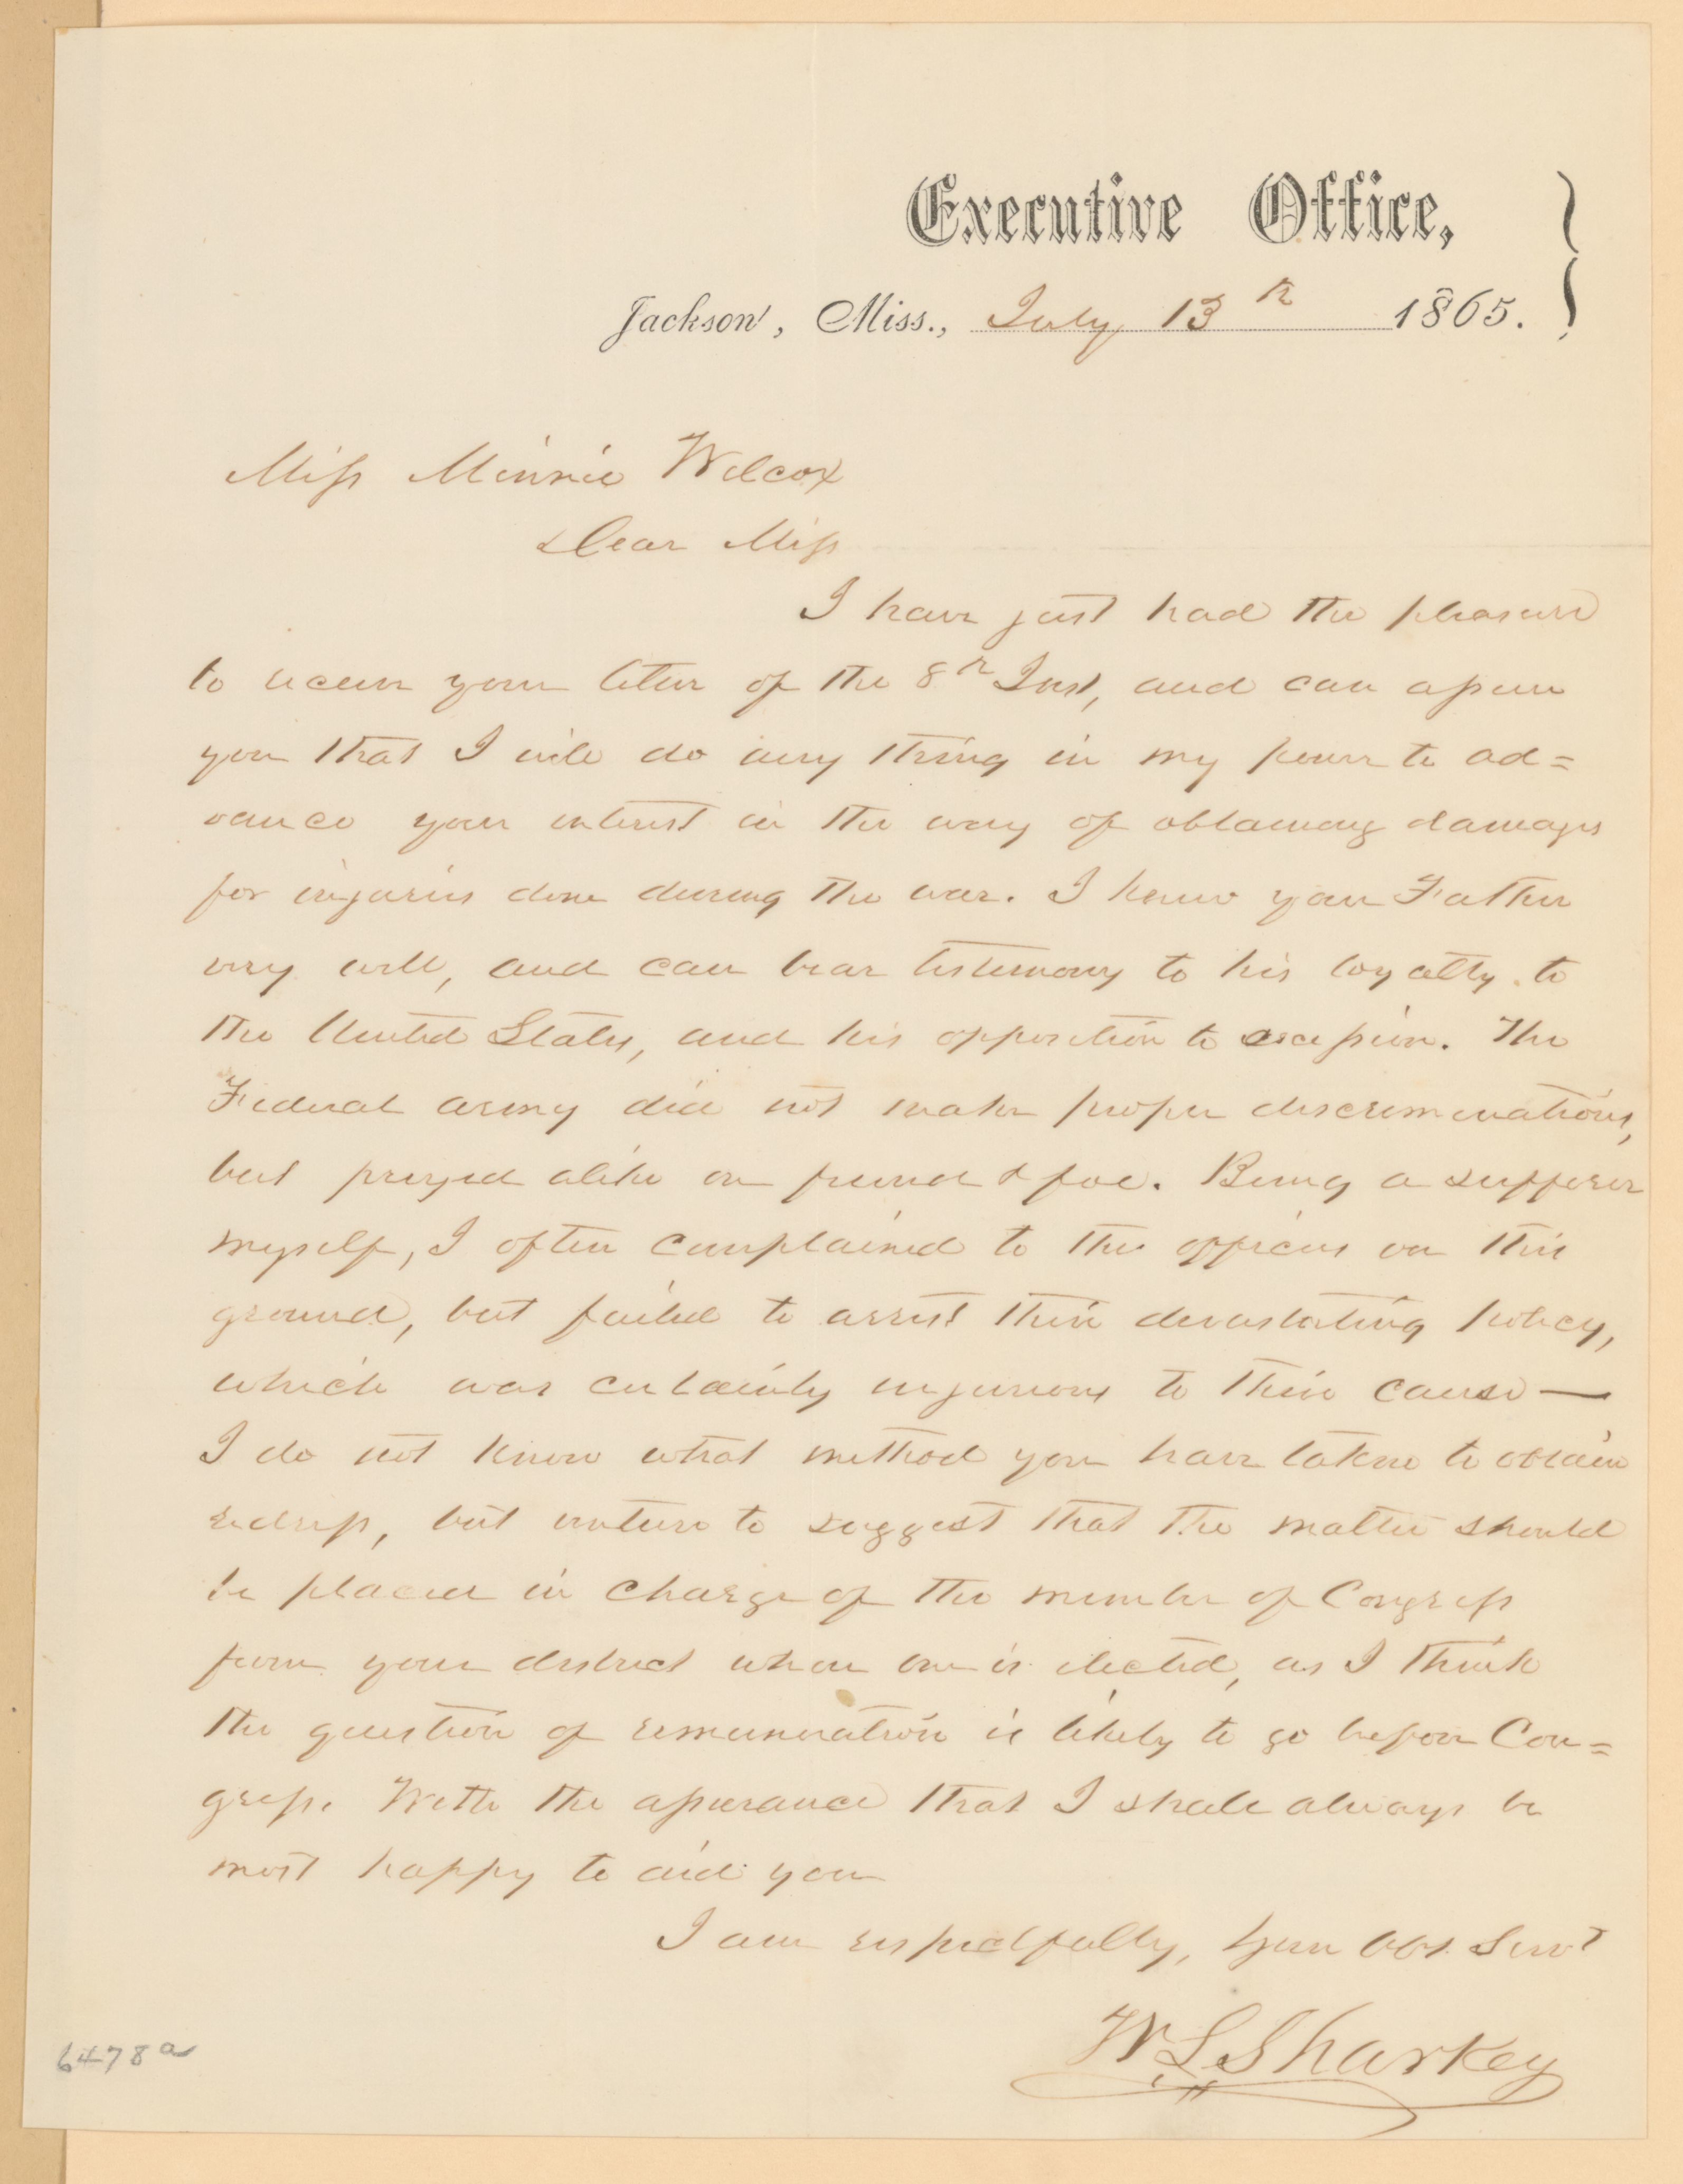 Executive Office,
Jackson, Miss., July 13th 1865.
Miss Minnie Wilcox
Dear Miss
I have just had the pleasure
to receive your letter of the 8th Inst, and can assure
you that I will do any thing in my power to ad=
vance your interest in the way of obtaining damages
for injuries done during the war. I knew your Father
very well, and can bear testimony to his loyalty to
the United States, and his opposition to secession. The
Federal army did not make proper discriminations,
but preyed alike on friend & foe. Being a sufferer
myself, I often complained to the officers on this
ground, but failed to arrest their devastating policy,
which was certainly injurious to their cause —
I do not know what method you have taken to obtain
redress, but venture to suggest that the matter should
be placed in charge of the member of Congress
from your district when one is elected, as I think
the question of remuneration is likely to go before Con=
gress. With the assurance that I shall always be
most happy to aid you
I am respectfully, Your Obt. Servt
W L Sharkey
6478a